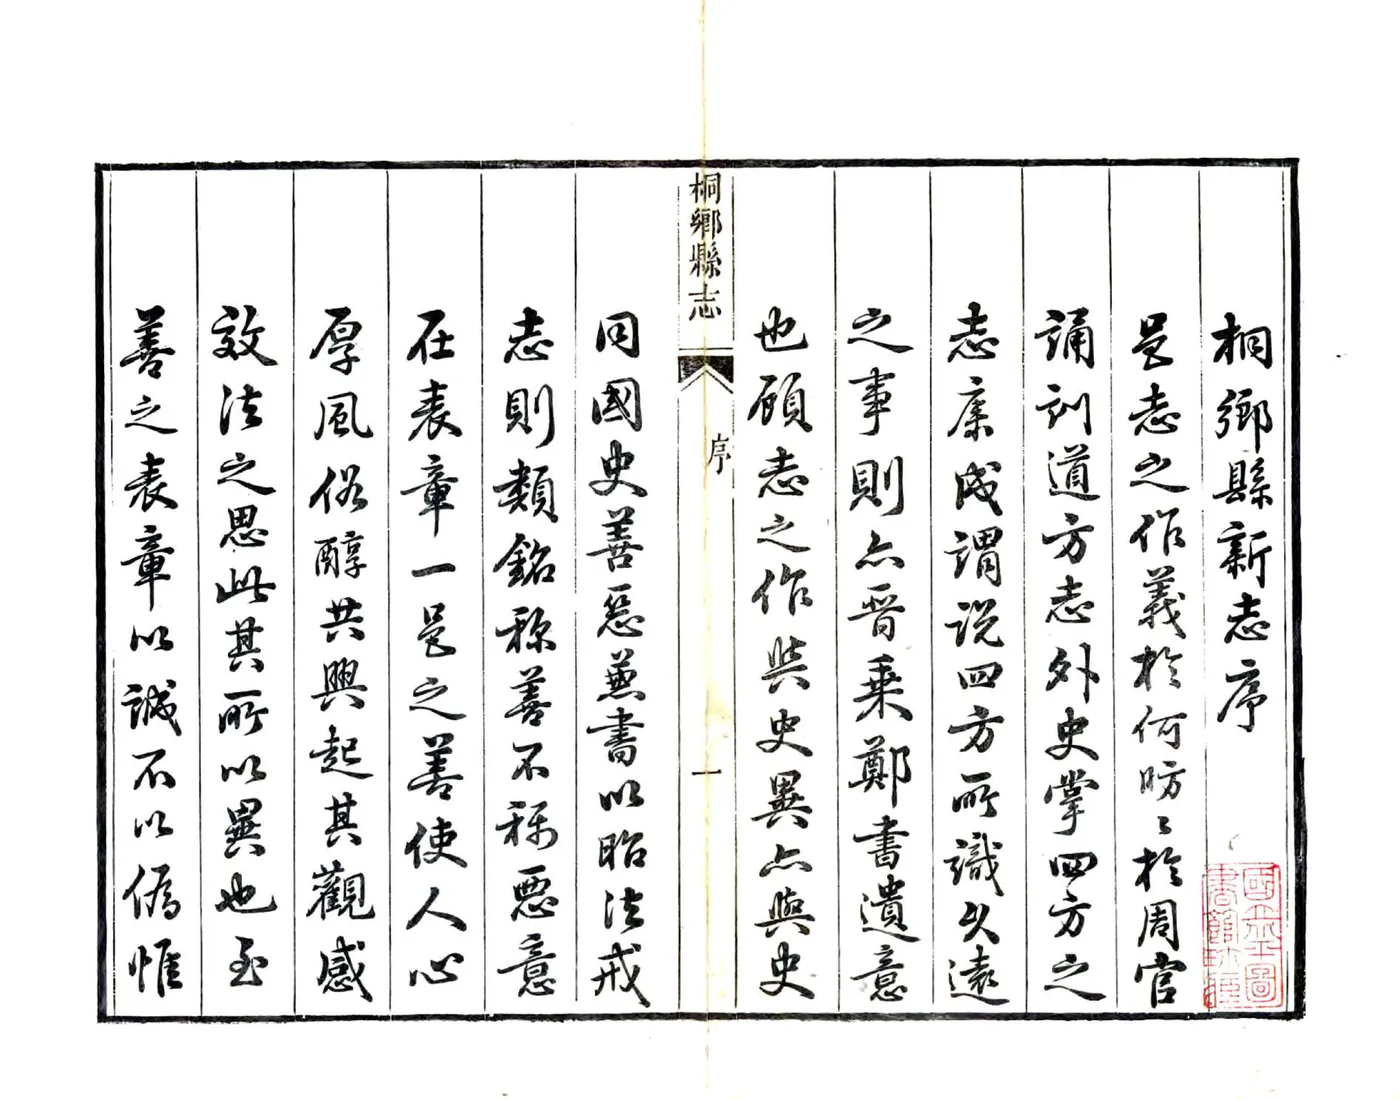 桐鄉縣新志序
邑志之作義於何昉〻於周官
誦訓道方志外史掌四方之
志康成謂說四方所識久遠
之事則亦晉乘鄭書遺意
也顧志之作與史異亦與史
桐鄉縣志
序
一
同國史善惡兼書以昭法戒
志則類銘稱善不稱惡意
在表章一邑之善使人心
厚風俗醇共興起其觀感
效法之思此其所以異也至
善之表章以誠不以偽惟
國立北平圖
書館收藏